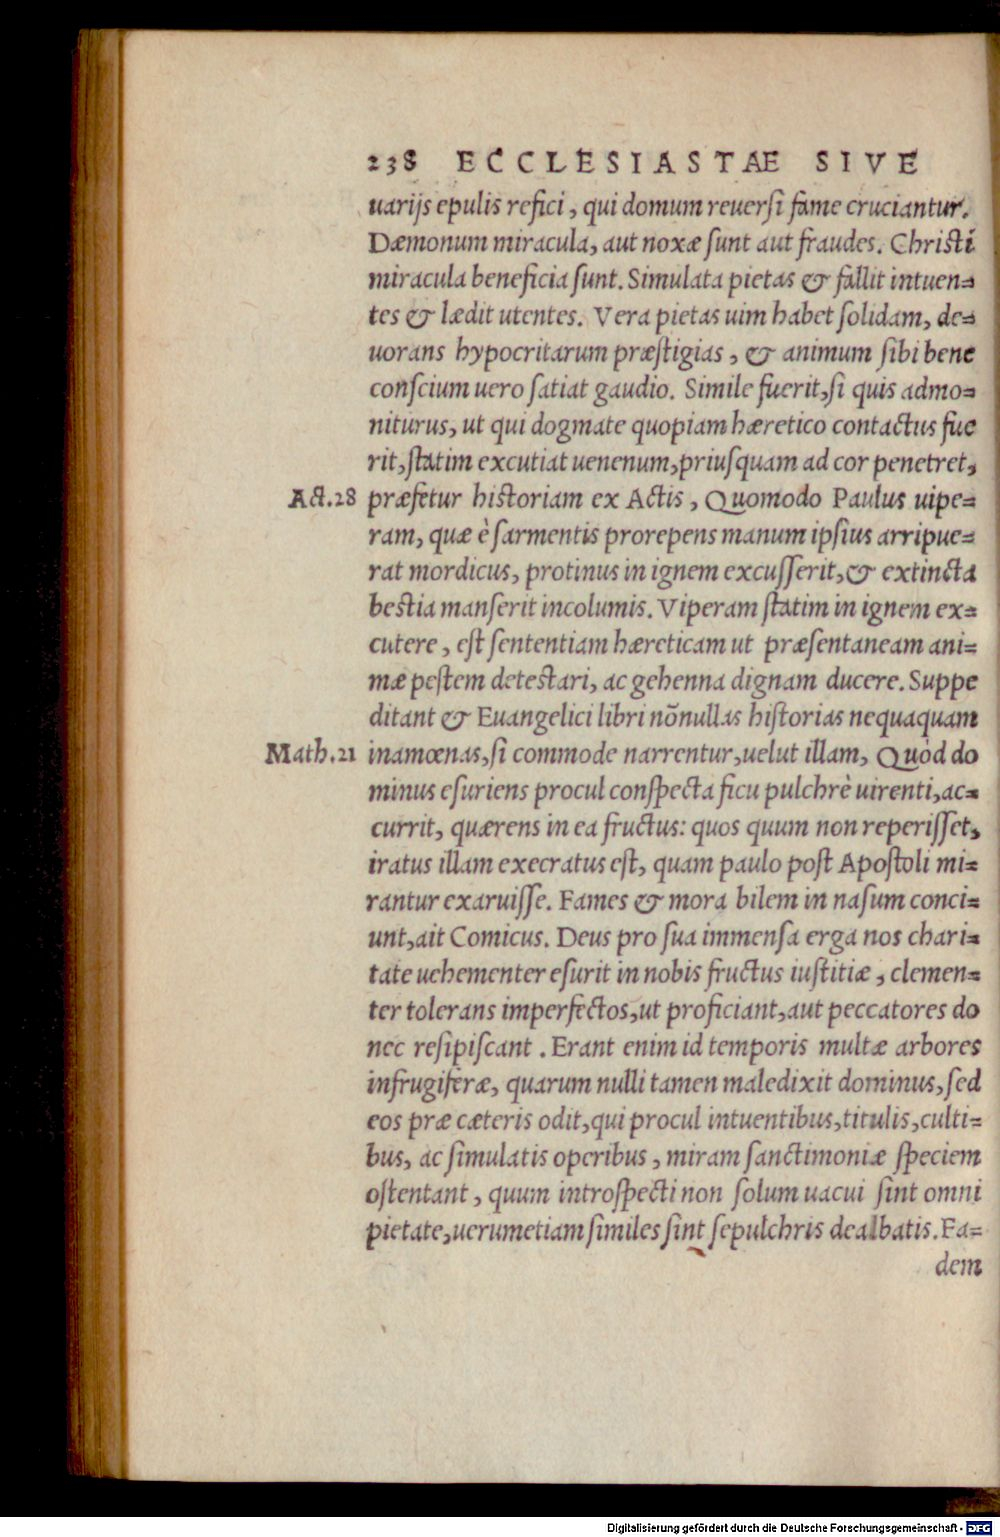 238 ECCLESIASTAE SIVE
uarijs epulis refici, qui domum reuersi fame cruciantur.
Dæmonum miracula, aut noxæ sunt aut fraudes. Christi
miracula beneficia sunt. Simulata pietas & fallit intuen=
tes & lædit utentes. Vera pietas uim habet solidam, de=
uorans hypocritarum præstigias, & animum sibi bene
conscium uero satiat gaudio. Simile fuerit, si quis admo=
niturus, ut qui dogmate quopiam hæretico contactus fue
rit, statim excutiat uenenum, priusquam ad cor penetret,
Act.28 præfetur historiam ex Actis, Quomodo Paulus uipe=
ram, quæ è sarmentis prorepens manum ipsius arripue=
rat mordicus, protinus in ignem excusserit, & extincta
bestia manserit incolumis. Viperam statim in ignem ex=
cutere, est sententiam hæreticam ut præsentaneam ani=
mæ pestem detestari, ac gehenna dignam ducere. Suppe
ditant & Euangelici libri nõnullas historias nequaquam
Math.21 inamœnas, si commode narrentur, uelut illam, Quòd do
minus esuriens procul conspecta ficu pulchrè uirenti, ac=
currit, quærens in ea fructus: quos quum non reperisset,
iratus illam execratus est, quam paulo post Apostoli mi=
rantur exaruisse. Fames & mora bilem in nasum conci=
unt, ait Comicus. Deus pro sua immensa erga nos chari=
tate uehementer esurit in nobis fructus iustitiæ, clemen=
ter tolerans imperfectos, ut proficiant, aut peccatores do
nec resipiscant. Erant enim id temporis multæ arbores
infrugiferæ, quarum nulli tamen maledixit dominus, sed
eos præ cæteris odit, qui procul intuentibus, titulis, culti=
bus, ac simulatis operibus, miram sanctimoniæ speciem
ostentant, quum introspecti non solum uacui sint omni
pietate, uerumetiam similes sint sepulchris dealbatis. Ea=
dem
Digitalisierung gefördert durch die Deutsche Forschungsgemeinschaft - DFG